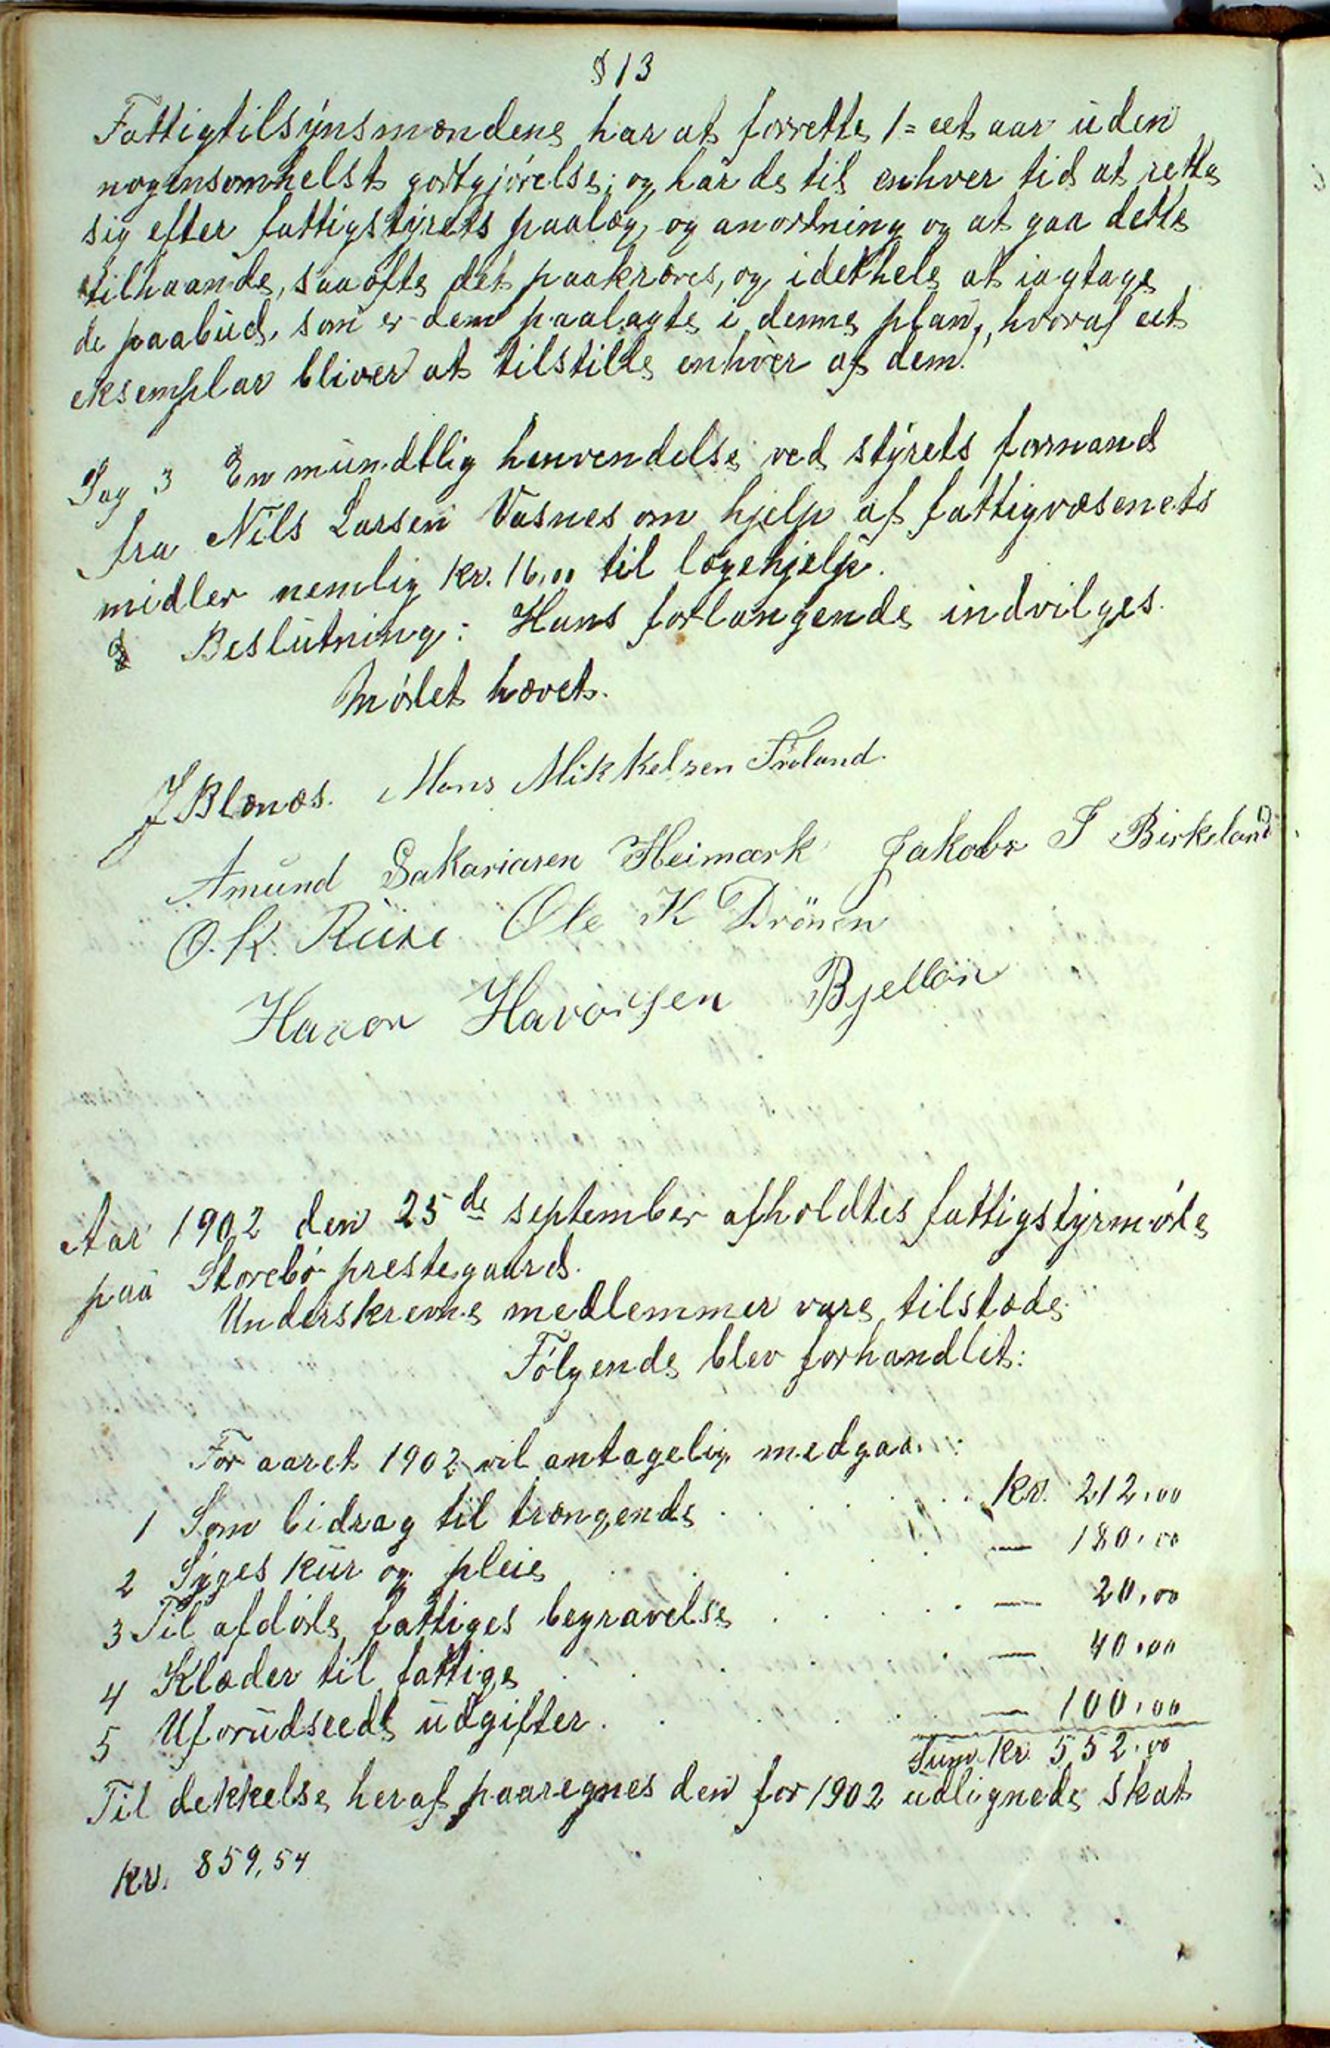 § 13
Fattigtilsynsmændene har at forrette 1 = eet aar uden
nogensomhelst godtgjörelse; og har de til enhver tid at rette
sig efter fattigstyrets paalæg og anordning og at gaa dette
tilhaande, saa ofte det paakræves, og idethele at iagtage
de paabud, som er dem paalagte i denne plan, hvoraf eet
eksemplar bliver at tilstille enhver af dem.
Sag 3 En mundtlig henvendelse ved styrets formand
fra Nils Larsen Vasnes om hjelp af fattigvæsenets
midler nemlig kr. 16,00 til lægehjelp.
Beslutning: Hans forlangende indvilges.
Mödet hævet.
J Blænæs. Mons Mikkelsen Fröland.
Amund Sakariasen Heimark Jakob J Birkeland
O. K. Riise Ole K Drönen
Havor Havorsen Bjelloen
Aar 1902 den 25de september afholdtes fattigstyrmöte
paa Storebö prestegaard.
Underskrevne medlemmer vare tilstæde
Fölgende blev forhandlet:
For aaret 1902 vil antagelig medgaa:
1 Som bidrag til trængende . . . . . . . kr. 212.00
2 Syges kur og pleie . . . . — 180.00
3 Til afdöde fattiges begravelse . . . . . . — 20.00
4 Klæder til fattige . . . . . . — 40.00
5 Uforudseede udgifter . . . . . . — 100.00
Sum Kr 552.00
Til dekkelse heraf paaregnes den for 1902 udlignede skat
kr. 859,54